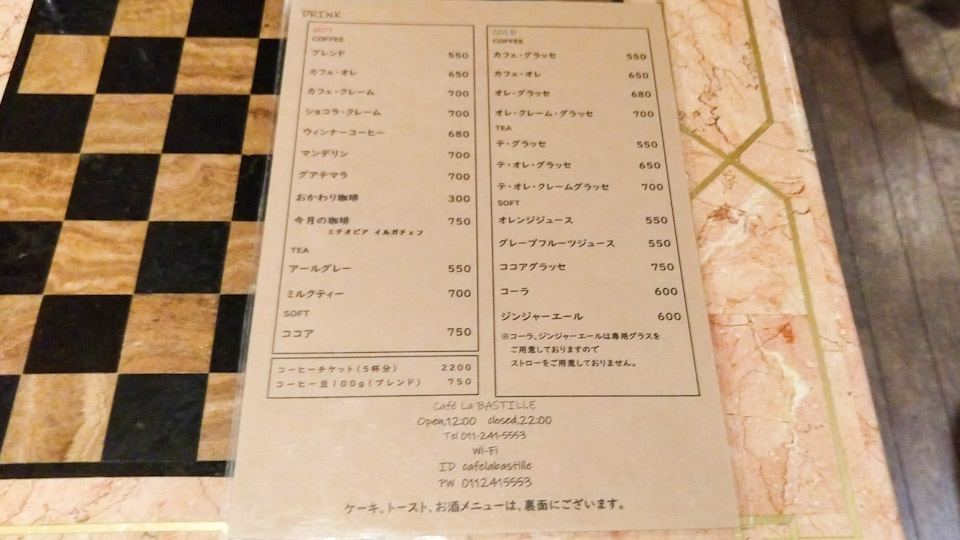 DRINK
HOT
COFFEE
ブレンド 550
カフェ・オレ 650
カフェ・クレーム 700
ショコラ・クレーム 700
ウィンナーコーヒー 680
マンデリン 700
グアテマラ 700
おかわり珈琲 300
今月の珈琲 750
エチオピア イルガチェフ
TEA
アールグレー 550
ミルクティー 700
SOFT
ココア 750
コーヒーチケット(5杯分) 2200
コーヒー豆100g(ブレンド) 750
COLD
COFFEE
カフェ・グラッセ 550
カフェ・オレ 650
オレ・グラッセ 680
オレ・クレーム・グラッセ 700
TEA
テ・グラッセ 550
テ・オレ・グラッセ 650
テ・オレ・クレームグラッセ 700
SOFT
オレンジジュース 550
グレープフルーツジュース 550
ココアグラッセ 750
コーラ 600
ジンジャーエール 600
※コーラ、ジンジャーエールは専用グラスを
ご用意しておりますので
ストローをご用意しておりません。
Café La BASTILLE
Open,12:00 closed,22:00
Tel 011-241-5553
Wi-Fi
ID cafelabastille
PW 0112415553
ケーキ、トースト、お酒メニューは、裏面にございます。